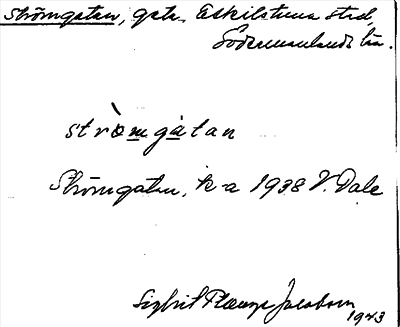 Strömgatan, gata. Eskilstuna stad,
Södermanlands län.
strò̀mgatan
Strömgatan, k-a 1938 V. Dale
Sigbrit Plænge Jacobson
1943